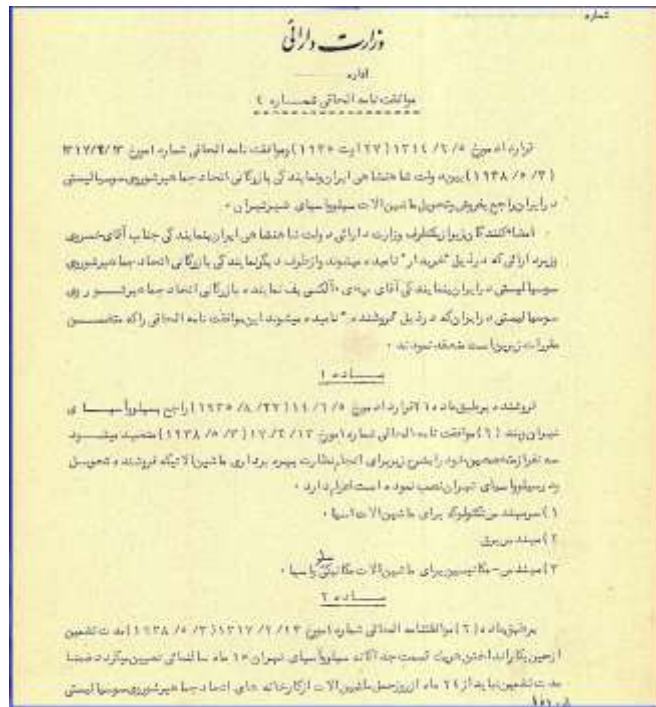 شماره
وزارت دارائی
اداره
موافقت نامه الحاقی شماره ٤
قرارداد مورخ ۱۳۱٤/٦/٥ (۲۷ اوت ۱۹۳٥) وموافقت نامه الحاقی شماره ۱مورخ ۱۳۱۷/۲/۱۳
(۱۹۳۸/٥/۳) بین دولت شاهنشاهی ایران ونمایندگی بازرگانی اتحاد جماهیر شوروی سوسیالیستی
درایران راجع بفروش وتحویل ماشین آلات سیلو وآسیای شهر تهران ۰
امضا کنندگان زیر ازیکطرف وزارت دارائی دولت شاهنشاهی ایران بنمایندگی جناب آقای خسروی
وزیر دارائی که درذیل "خریدار" نامیده میشوند وازطرف دیگر نمایندگی بازرگانی اتحاد جماهیر شوروی
سوسیالیستی درایران بنمایندگی آقای الکسی یف نماینده بازرگانی اتحاد جماهیر شوروی
سوسیالیستی درایران که درذیل "فروشنده" نامیده میشوند این موافقت نامه الحاقی راکه متضمن
مقررات زیرین است منعقد نمودند ۰
ماده ۱
فروشنده برطبق ماده قرارداد مورخ ١٤/٦/٥ (۱۹۳٥/۸/۲۷) راجع بسیلو وآسیای
تهران وبند (٦) موافقت نامه الحاقی شماره ۱مورخ ۱۷/۲/۱۳ (۱۹۳۸/٥/۳) متعهد میشود
سه نفر ازمتخصصین خود را بشرح زیر برای انجام نظارت بهره برداری ماشین آلاتیکه فروشنده تحویل
ودرسیلو وآسیای تهران نصب نموده است اعزام دارد ۰
۱) سرمهندس تکنولوگ برای ماشین آلات آسیا ۰
۲) مهندس برق
۳) مهندس - مکانیسین برای ماشین آلات مکانیکی وآسیا ۰
ماده ۲
برطبق ماده (٦) موافقتنامه الحاقی شماره ۱مورخ ۱۳۱۷/۲/۱۳ (۱۹۳۸/٥/۳) مدت تضمین
ازحین بکار انداختن هریک قسمت جداگانه سیلو وآسیای تهران ۱۰ ماه سالتمائی تعیین میگردد ضمنا
مدت تضمین نباید از ۲٤ ماه ازروز حمل ماشین آلات ازکارخانه های اتحاد جماهیر شوروی سوسیالیستی